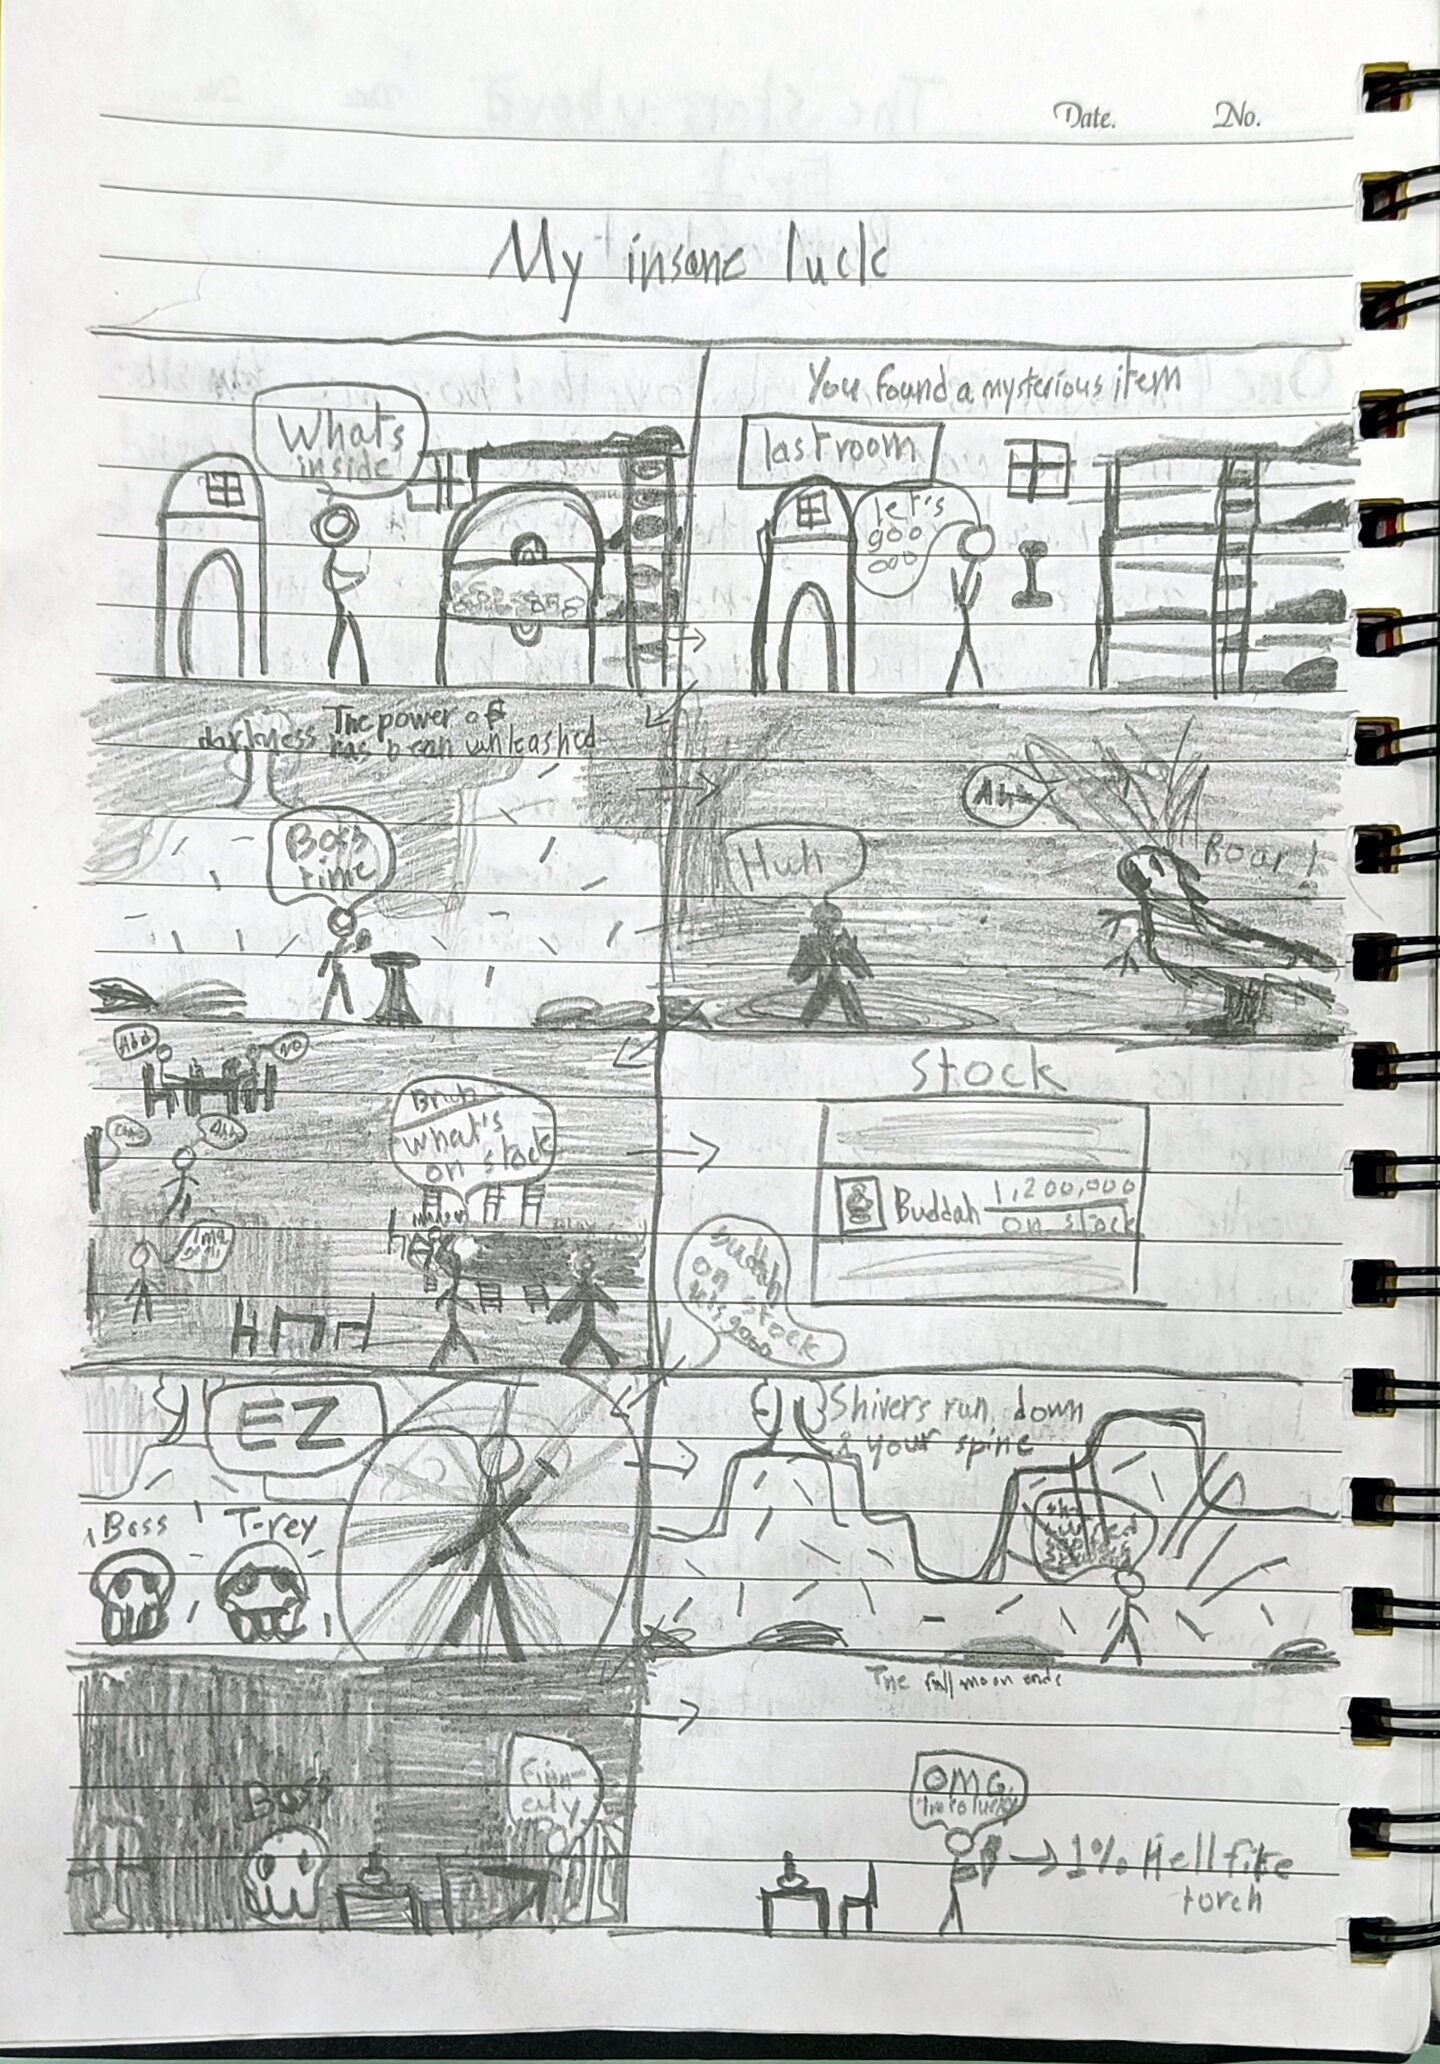 Date. No.
My insane luck
Whats
inside
You found a mysterious item
last room
let's
goo
ooo
The power of
darkness has been unleashed
Boss
time
Huh
Ahh
Roar!
Ahh
NO
Ahh
Bruh
What's
on stock
Stock
Buddah 1,200,000
on stock
Buddah
on
stock
lets gooo
EZ
Boss T-rey
Shivers run down
your spine
Boss
Finn
The full moon ends
OMG
→ 1% Hellfire
torch